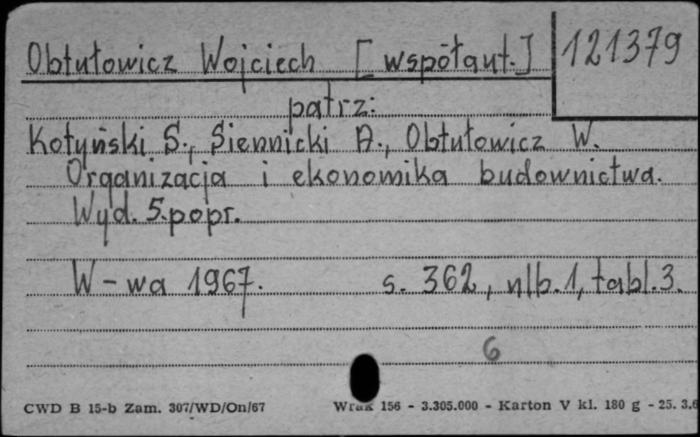 Obtułowicz Wojciech [współaut.] 121379
patrz:
Kotyński S., Siennicki A., Obtułowicz W.
Organizacja i ekonomika budownictwa.
Wyd. 5.popr.
W-wa 1967. s. 362, nlb.1, tabl.3.
6
CWD B 15-b Zam. 307/WD/On/67 156 - 3.305.000 - Karton V kl. 180 g - 25. 3.6